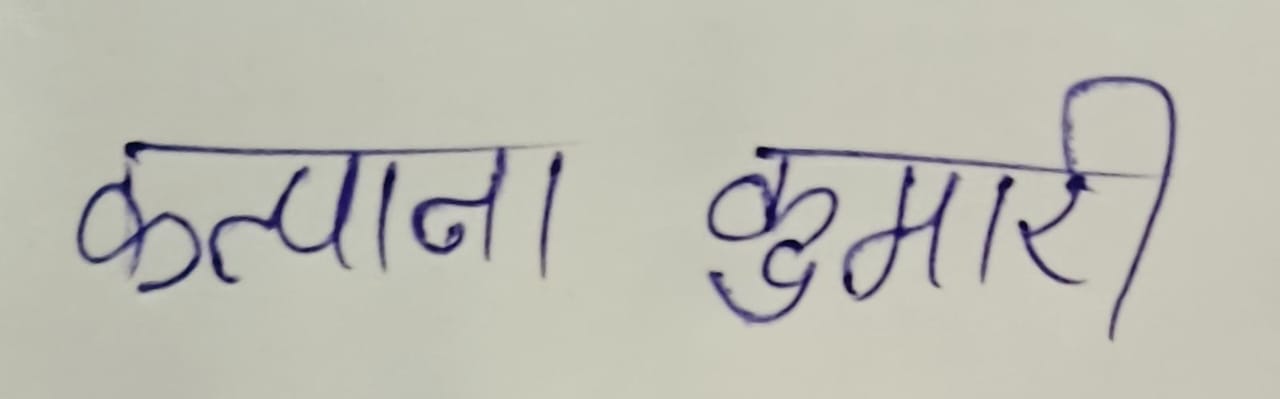 कल्पाना कुमारी